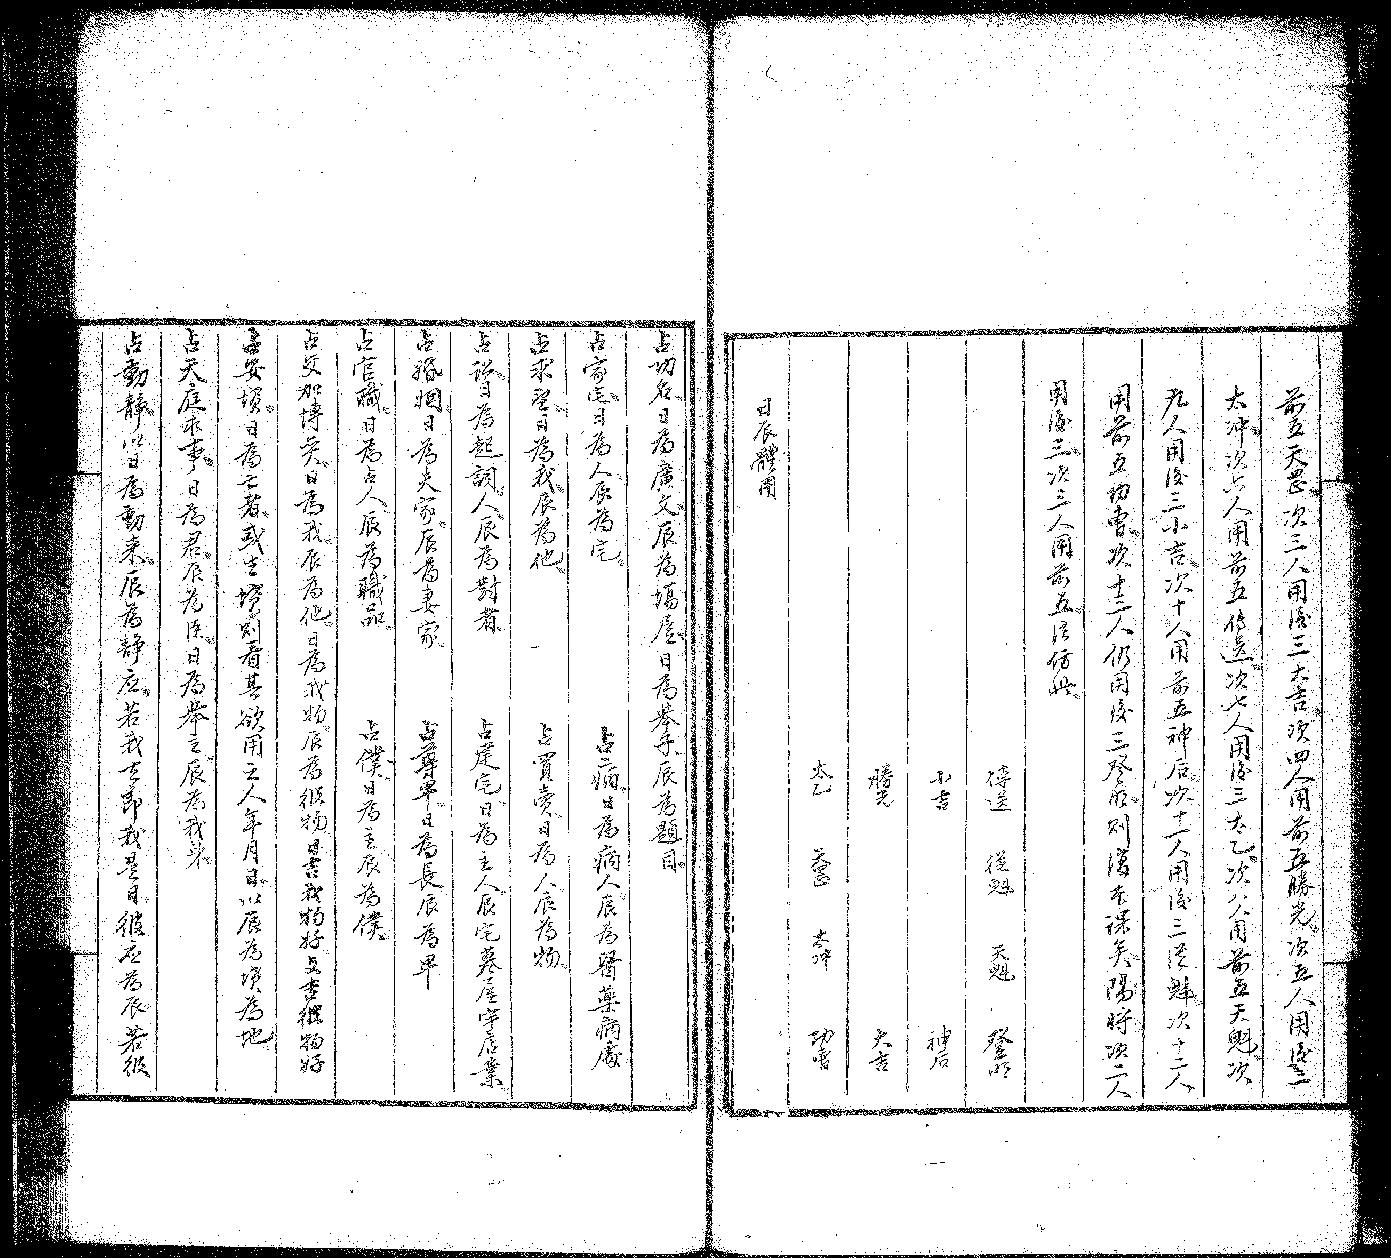 前五天罡次三人用後三大吉次四人用前五勝光次五人用後三
太冲次六人用前五傳送次七人用後三太乙次八人用前五天魁次
九人用後三小吉次十人用前五神后次十一人用後三從魁次十二人
用前五功曹次十三人仍用後三登明則復本課矣陽將次二人
用後三次三人用前五法仿此
傳送 從魁 天魁 登明
小吉 神后
勝光 大吉
太乙 天罡 太冲 功曹
日辰體用
占功名日為廣文辰為場屋日為舉子辰為題目
占家宅日為人辰為宅 占病日為病人辰為醫藥病處
占求望日為我辰為他 占買賣日為人辰為物
占訟日為起詞人辰為對者 占建宅日為主人辰宅墓屋宇店業
占婚姻日為夫家辰為妻家 占尊卑日為長辰為卑
占官職日為占人辰為職品 占僕日為主辰為僕
占交加博奕日為我辰為他日為我物辰為彼物日吉我物好辰吉彼物好
占安墳日為亡者或主墳則看其欲用亡人年月日以辰為墳為地
占天庭求事日為君辰為臣日為舉主辰為我身
占動靜以日為動來辰為靜應若我去即我是日彼應為辰若彼